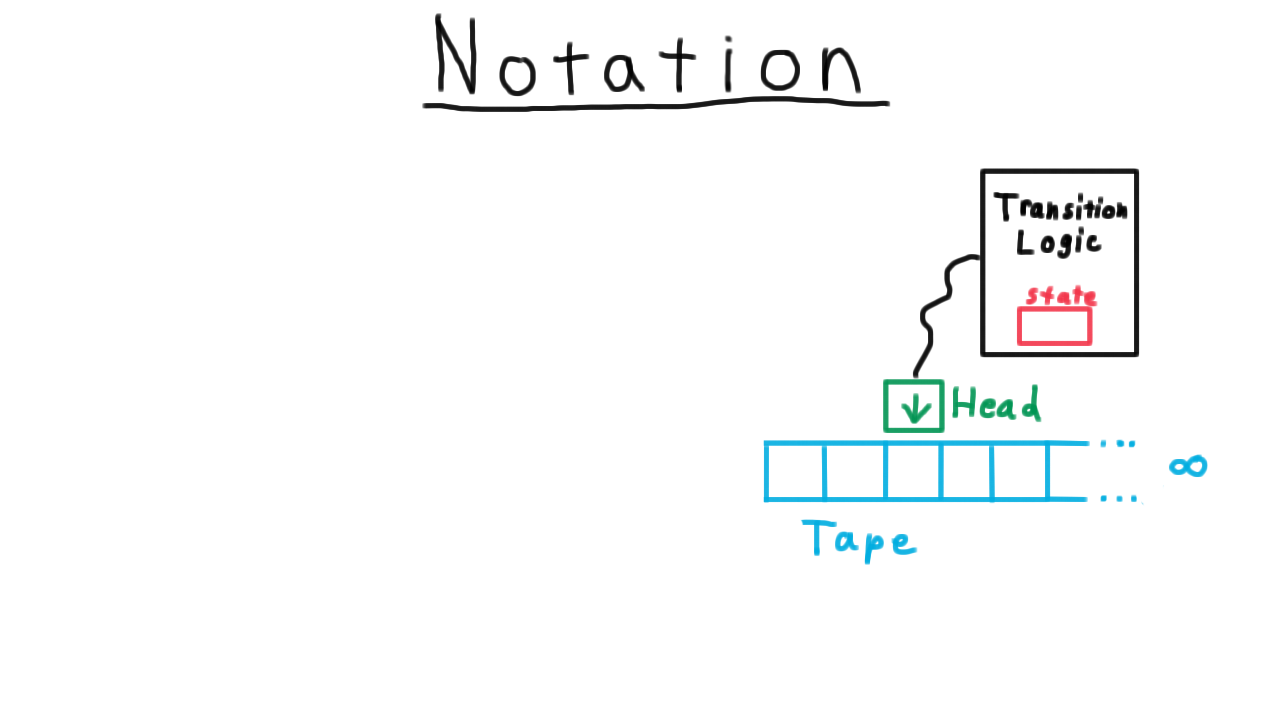 Notation
Transition
Logic
state
↓ Head
... ∞
...
Tape